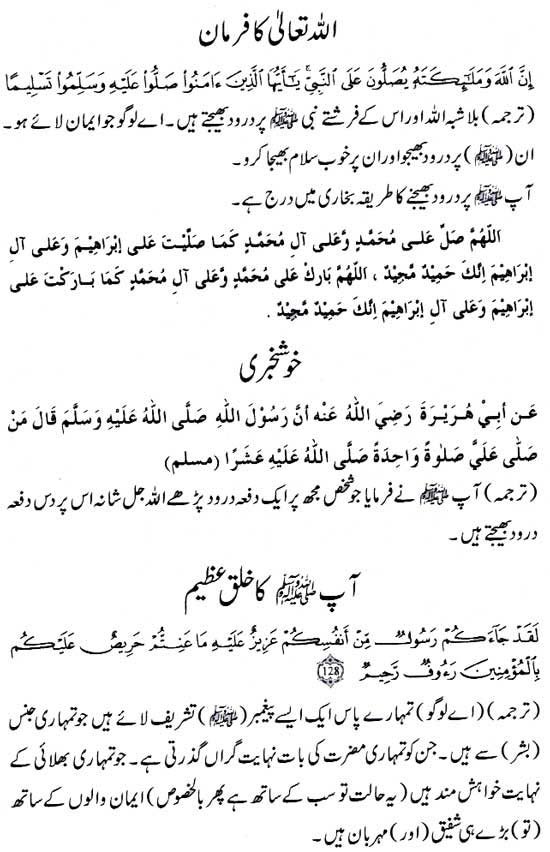 اللہ تعالیٰ کا فرمان
إِنَّ ٱللَّهَ وَمَلَـٰٓئِكَتَهُۥ يُصَلُّونَ عَلَى ٱلنَّبِىِّ ۚ يَـٰٓأَيُّهَا ٱلَّذِينَ ءَامَنُوا۟ صَلُّوا۟ عَلَيْهِ وَسَلِّمُوا۟ تَسْلِيمًا
(ترجمہ) بلاشبہ اللہ اور اس کے فرشتے نبی ﷺ پر درود بھیجتے ہیں۔ اے لوگو جو ایمان لائے ہو۔
ان (ﷺ) پر درود بھیجو اور ان پر خوب سلام بھیجا کرو۔
آپ ﷺ پر درود بھیجنے کا طریقہ بخاری میں درج ہے۔
اللّٰهُمَّ صَلِّ عَلٰى مُحَمَّدٍ وَّعَلٰى آلِ مُحَمَّدٍ كَمَا صَلَّيْتَ عَلٰى إِبْرَاهِيْمَ وَعَلٰى آلِ
إِبْرَاهِيْمَ إِنَّكَ حَمِيْدٌ مَّجِيْدٌ ، اللّٰهُمَّ بَارِكْ عَلٰى مُحَمَّدٍ وَّعَلٰى آلِ مُحَمَّدٍ كَمَا بَارَكْتَ عَلٰى
إِبْرَاهِيْمَ وَعَلٰى آلِ إِبْرَاهِيْمَ إِنَّكَ حَمِيْدٌ مَّجِيْدٌ .
خوشخبری
عَن أَبِيْ هُرَيْرَةَ رَضِيَ اللّٰهُ عَنْه أنَّ رَسُوْلَ اللّٰهِ صَلَّى اللّٰهُ عَلَيْهِ وَسَلَّمَ قَالَ مَنْ
صَلّٰى عَلَيَّ صَلٰوةً وَاحِدَةً صَلَّى اللّٰهُ عَلَيْهِ عَشْرًا (مسلم)
(ترجمہ) آپ ﷺ نے فرمایا جو شخص مجھ پر ایک دفعہ درود پڑھے اللہ جل شانہ اس پر دس دفعہ
درود بھیجتے ہیں۔
آپ ﷺ کا خلق عظیم
لَقَدْ جَآءَكُمْ رَسُولٌ مِّنْ أَنفُسِكُمْ عَزِيزٌ عَلَيْهِ مَا عَنِتُّمْ حَرِيصٌ عَلَيْكُم
بِٱلْمُؤْمِنِينَ رَءُوفٌ رَّحِيمٌ 128
(ترجمہ) (اے لوگو) تمہارے پاس ایک ایسے پیغمبر (ﷺ) تشریف لائے ہیں جو تمہاری جنس
(بشر) سے ہیں۔ جن کو تمہاری مضرت کی بات نہایت گراں گذرتی ہے۔ جو تمہاری بھلائی کے
نہایت خواہش مند ہیں (یہ حالت تو سب کے ساتھ ہے پھر بالخصوص) ایمان والوں کے ساتھ
(تو) بڑے ہی شفیق (اور) مہربان ہیں۔